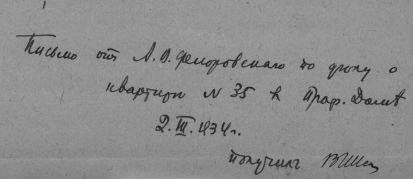 Письмо от А.О. Федоровскаго по делу о
квартире N 35 в Проф. Доме
2.III.1934г.
получил